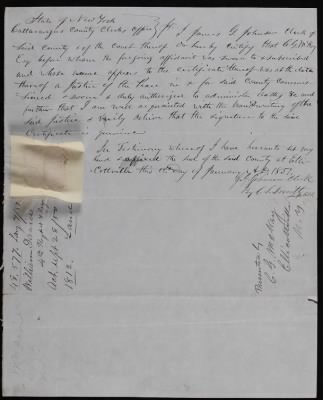 State of New York
Cattaraugus County Clerks office ss. I James G Johnson Clerk of
said county & of the Court thereof do hereby certify that C. G. McKay
Esq before whom the foregoing affidavit was sworn & subscribed
and whose name appears to the certificate thereof was at the date
thereof a Justice of the Peace in & for said County Commis
sioned & sworn & duly authorized to administer oaths &c and
further that I am well acquainted with the handwriting of the
said Justice & verily believe that the signature to the said
Certificate is genuine
In Testimony whereof I have hereunto set my
hand & affixed the seal of the said County at Elli
cottville this day of January AD 1851
Johnson Clerk
By
Presented by
C. G. McKay
Ellicottville
N. Y.
William
Oct Sept 28
1812. Land